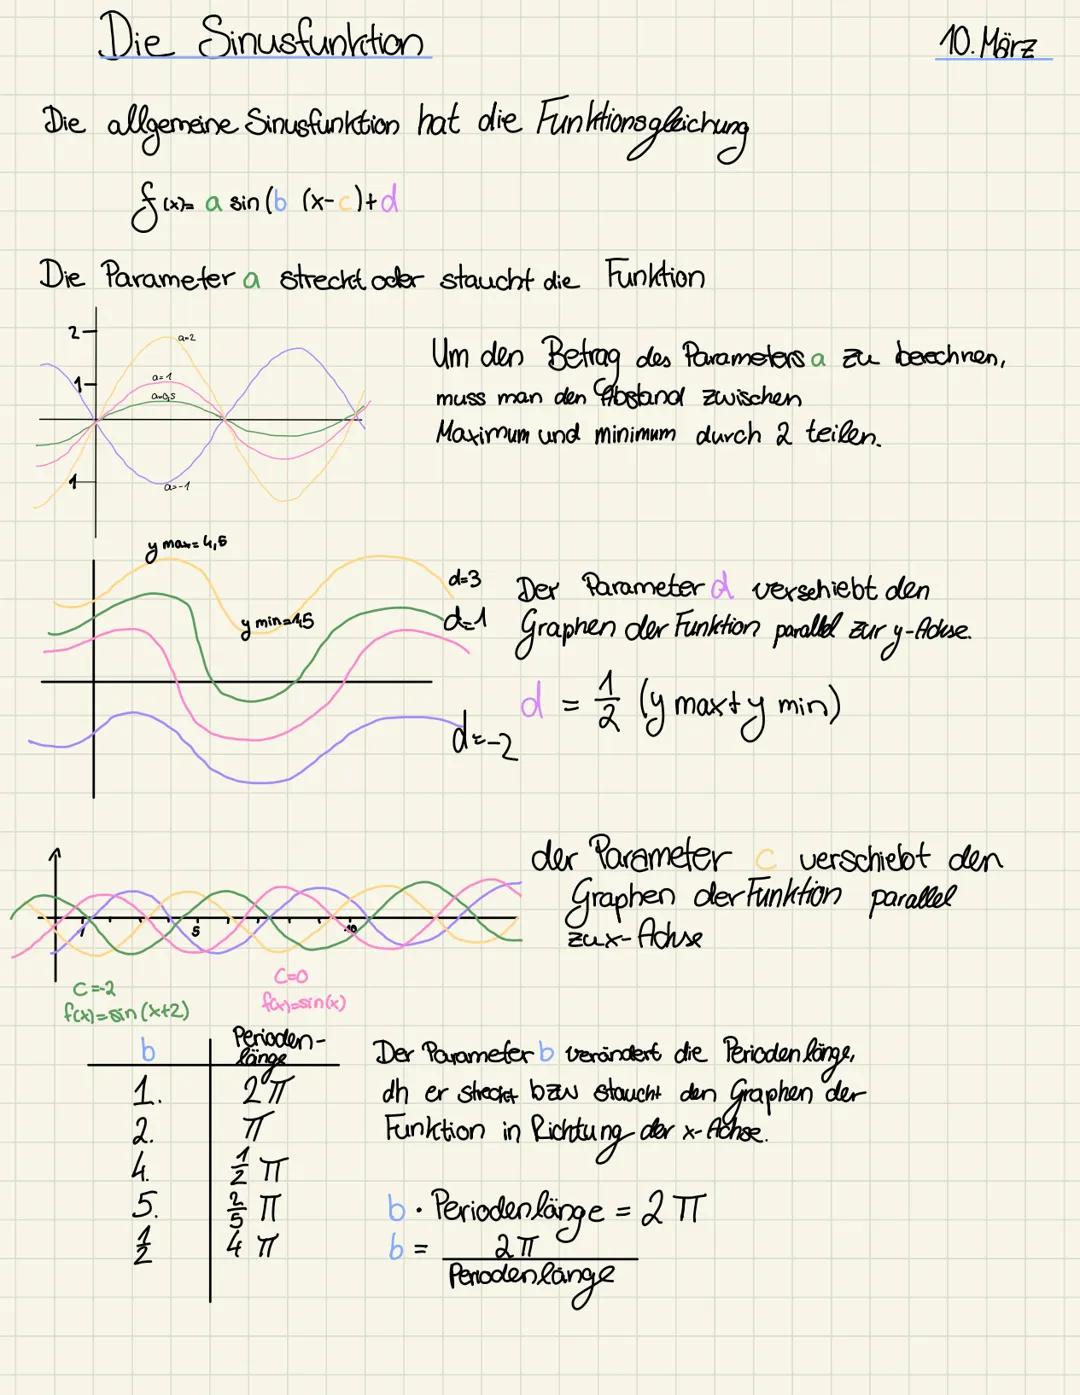 Die Sinusfunktion
10. März
Die allgemeine Sinusfunktion hat die Funktionsgleichung
f(x)= a sin(b (x-c)+d
Die Parameter a streckt oder staucht die Funktion
2
a=2
1
a=1
a=0,5
1
a=-1
Um den Betrag des Parameters a zu berechnen,
muss man den Abstand zwischen
Maximum und minimum durch 2 teilen.
y max= 4,5
y min=1,5
d=3
d=1
d=-2
Der Parameter d verschiebt den
Graphen der Funktion parallel zur y-Achse.
d = 1/2 (y max+y min)
1
5
10
C=-2
f(x)=sin(x+2)
C=0
f(x)=sin(x)
der Parameter c verschiebt den
Graphen der Funktion parallel
zu x-Achse
b
Perioden-
länge
1. 2π
2. π
4. 1/2 π
5. 2/5 π
1/2 4 π
Der Parameter b verändert die Periodenlänge,
dh er streckt bzw staucht den Graphen der
Funktion in Richtung der x-Achse.
b · Periodenlänge = 2 π
b = 2π
Periodenlänge